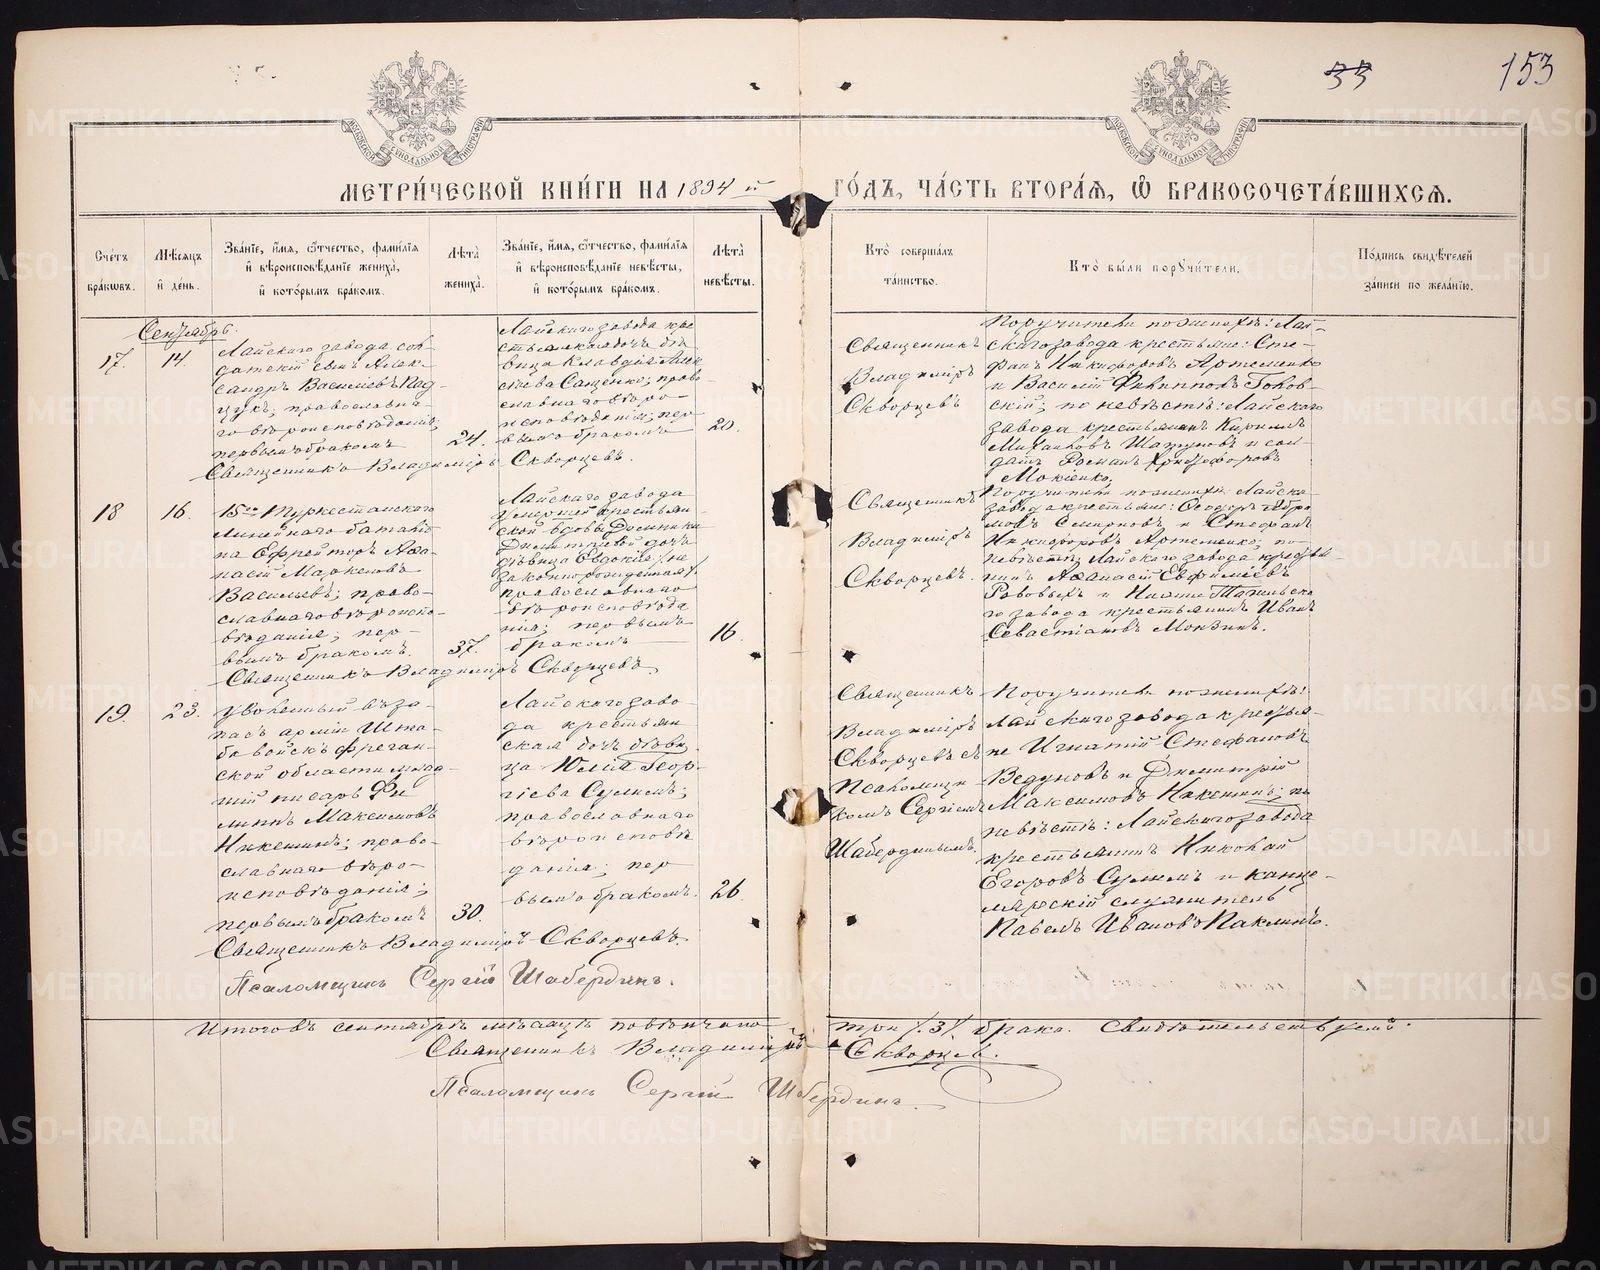 33 153
МЕТРИ́ЧЕСКОЙ КНИ́ГИ НА 1894 й ГО́ДЪ, ЧА́СТЬ ВТОРА́Я, Ѡ БРАКОСОЧЕТА́ВШИХСЯ.
Сче́тъ бра́кѡвъ.
Мѣ́сяцъ и҆ день.
Зва́нїе, и҆́мя, ѻ҆́тчество, фами́лїя и҆ вѣроисповѣ́данїе жениха̀, и҆ кото́рымъ бра́комъ.
Лѣ́та̀ жениха̀.
Зва́нїе, и҆́мя, ѻ҆́тчество, фами́лїя и҆ вѣроисповѣ́данїе невѣ́сты, и҆ кото́рымъ бра́комъ.
Лѣ́та̀ невѣ́сты.
Кто̀ соверша́лъ та́инство.
Кто̀ бы́ли порꙋчи́тели.
По́дпись свидѣ́телей за́писи по жела́нїю.
Сентябрь.
17. 14.
Лайскаго завода сол-
датскій сынъ Алек-
сандръ Васильевъ
православна-
го вѣроисповѣданія,
первымъ бракомъ
24.
Лайскаго завода кре-
стьянская дочь дѣ-
вица Клавдія
Сащенко; право-
славнаго вѣро-
исповѣданія; пер-
вымъ бракомъ
20.
Священникъ
Владиміръ
Скворцевъ
Поручители по женихѣ: Лай-
скаго завода крестьяне: Сте-
фанъ Никифоровъ Артеменко
и Василій Филипповъ
скій; по невѣстѣ: Лайскаго
завода крестьянинъ Кириллъ
Михайловъ и сол-
датъ Романъ Христофоровъ
Мокіенко.
Священникъ Владиміръ Скворцевъ.
18 16.
15го Туркестанскаго
Линейнаго баталіо
на Ефрейторъ Аѳа-
насій Маркеловъ
Васильевъ; право-
славнаго вѣроиспо-
вѣданія; пер-
вымъ бракомъ.
37.
Лайскаго завода
умершей крестьян-
ской вдовы Домники
Димитріевой дочь
дѣвица Евдокія /не
законнорожденная/
православнаго
вѣроисповѣда
нія; первымъ
бракомъ
16.
Священникъ
Владиміръ
Скворцевъ.
Поручители по женихѣ: Лайска-
завода крестьяне: Ѳеодоръ Абра
мовъ Смирновъ и Стефанъ
Никифоровъ Артеменко; по
невѣстѣ: Лайскаго завода крестья-
нинъ Аѳанасій Евфиміевъ
и Нижне Тагильска
го завода крестьянинъ Иванъ
Севастіановъ Мокзинъ.
Священникъ Владиміръ Скворцевъ
19. 23.
Уволенный въ за-
пасъ арміи Шта-
ба войскъ Ферган-
ской области млад-
шій писарь Фи
липпъ Максимовъ
Никешинъ; право-
славнаго вѣро-
исповѣданія;
первымъ бракомъ
30.
Лайскаго заво-
да крестьян-
ская дочь дѣви
ца Юлія Геор-
гіева Сулимъ;
православнаго
вѣроисповѣ
данія; пер
вымъ бракомъ.
26
Священникъ
Владиміръ
Скворцевъ съ
Псаломщи
комъ Сергіемъ
Шабердинымъ.
Поручители по женихѣ:
Лайскаго завода крестья-
не Игнатій Стефановъ
Ведуновъ и Димитрій
Максимовъ Никешинъ; по
невѣстѣ: Лайскаго завода
крестьянинъ Николай
Егоровъ Сулимъ и канце-
лярскій служитель
Павелъ Ивановъ Паклинъ.
Священникъ Владиміръ Скворцевъ.
Псаломщикъ Сергій Шабердинъ.
Итого въ сентябрѣ мѣсяцѣ повѣнчано три /3/ брака. Свидѣтельствуемъ:
Священникъ Владиміръ Скворцевъ.
Псаломщикъ Сергій Шабердинъ.
METRIKI.GASO-URAL.RU